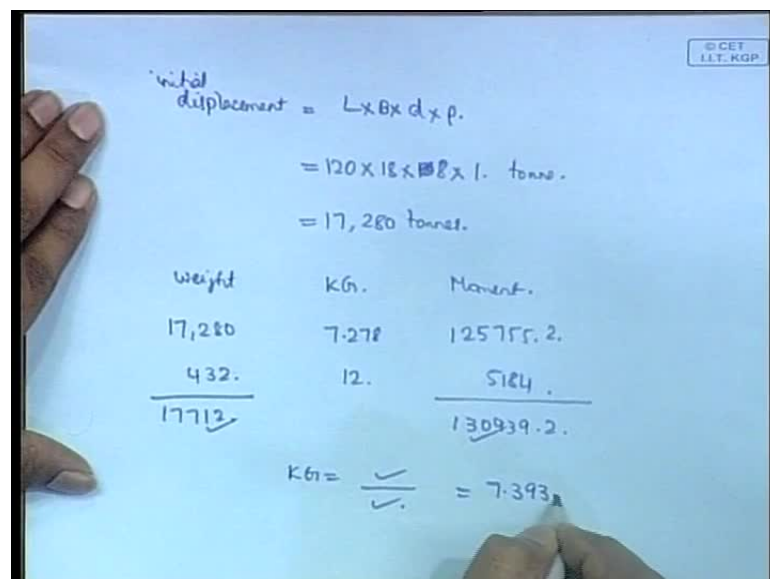 © CET
I.I.T. KGP
initial
displacement = L×B×d×ρ.
= 120 × 18 × 8 × 1. tonne.
= 17,280 tonnes.
Weight KG. Moment.
17,280 7.278 125755.2.
432. 12. 5184.
17712 130939.2.
KG = ✓ / ✓. = 7.393